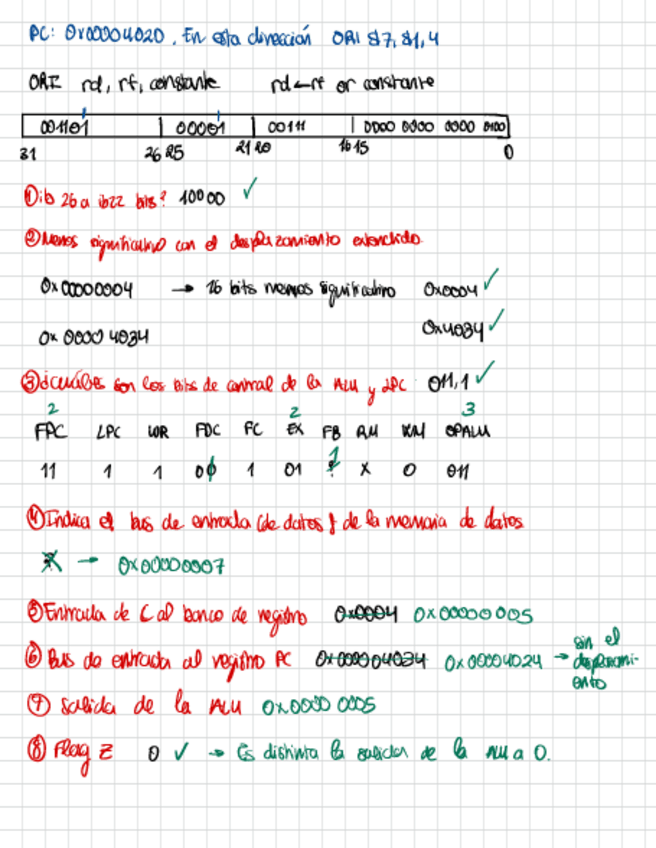 PC: 0x00004020. En esta dirección ORI $7, $1, 4
ORI rd, rf, constante rd ← rf or constante
001101 | 00001 | 00111 | 0000 0000 0000 0100
31 26 25 21 20 16 15 0
① ib 26 a ib22 bits? 10000 ✓
② Menos significativo con el desplazamiento extendido
0x00000004 → 16 bits menos significativo 0x0004 ✓
0x 0000 4034 0x4034 ✓
③ ¿cuáles son los bits de control de la ALU y LPC 011,1 ✓
2 2 3
FPC LPC WR FDC FC EX FB RM WM OPALU
11 1 1 00 1 01 1 X 0 011
④ Indica el bus de entrada (de datos) de la memoria de datos
X → 0x00000007
⑤ Entrada de C al banco de registro 0x0004 0x00000005
⑥ Bus de entrada al registro PC 0x00004034 0x00004024 → sin el desplazami-
ento
⑦ Salida de la ALU 0x0000 0005
⑧ Flag Z 0 ✓ → Es distinta la salida de la ALU a 0.